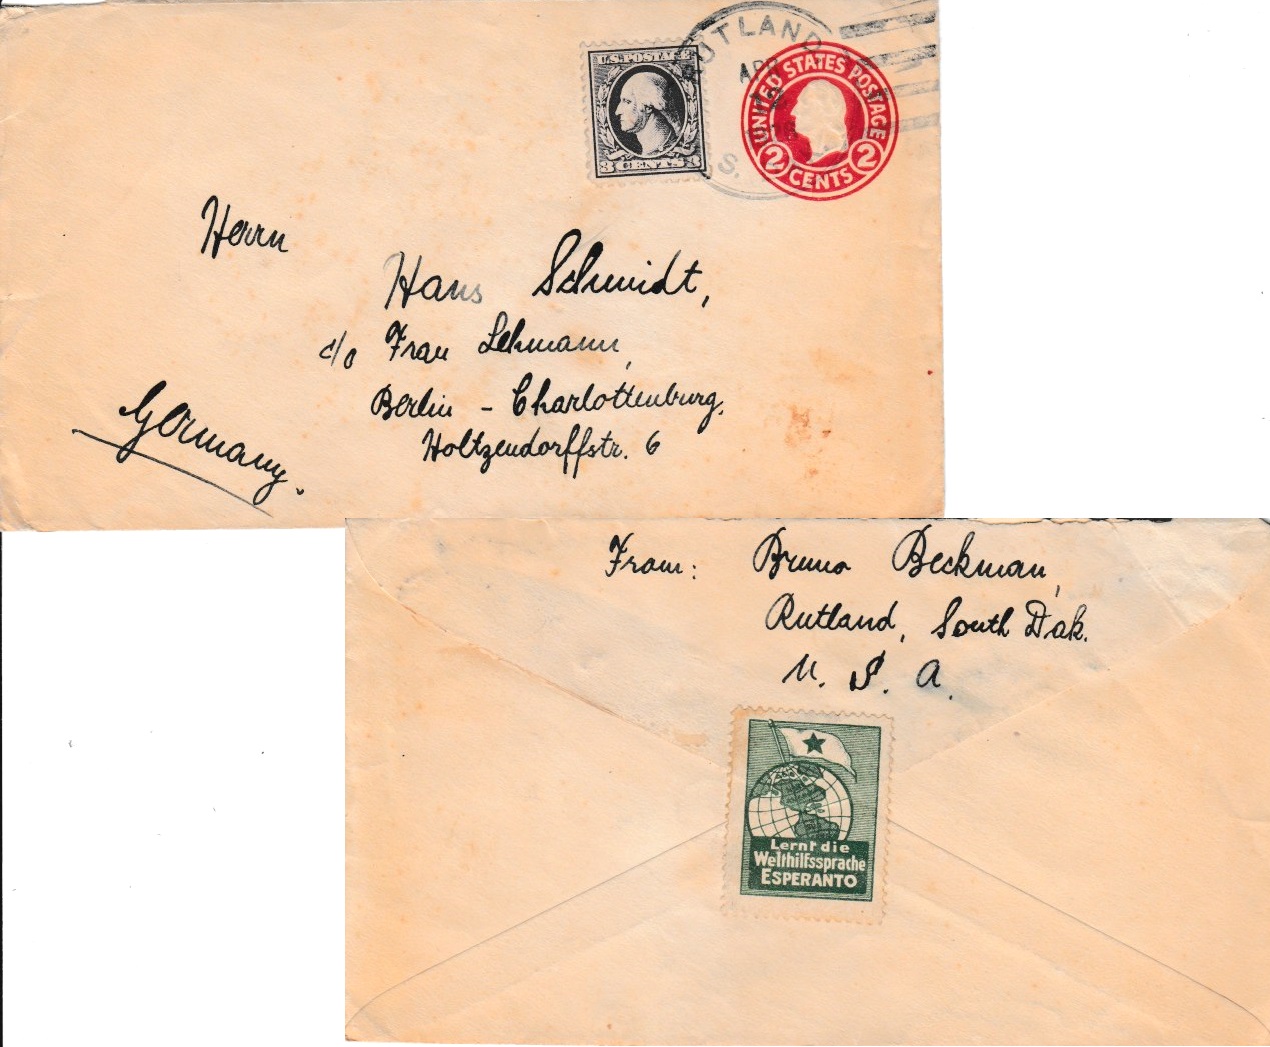 U.S. POSTAGE
3 CENTS 3
RUTLAND
APR
S.
UNITED STATES POSTAGE
2 CENTS 2
Herrn
Hans Schmidt,
c/o Frau Lehmann,
Berlin - Charlottenburg,
Holtzendorffstr. 6
Germany.
From: Bruno Beckman,
Rutland, South Dak.
U. S. A.
Lernt die
Welthilfssprache
ESPERANTO